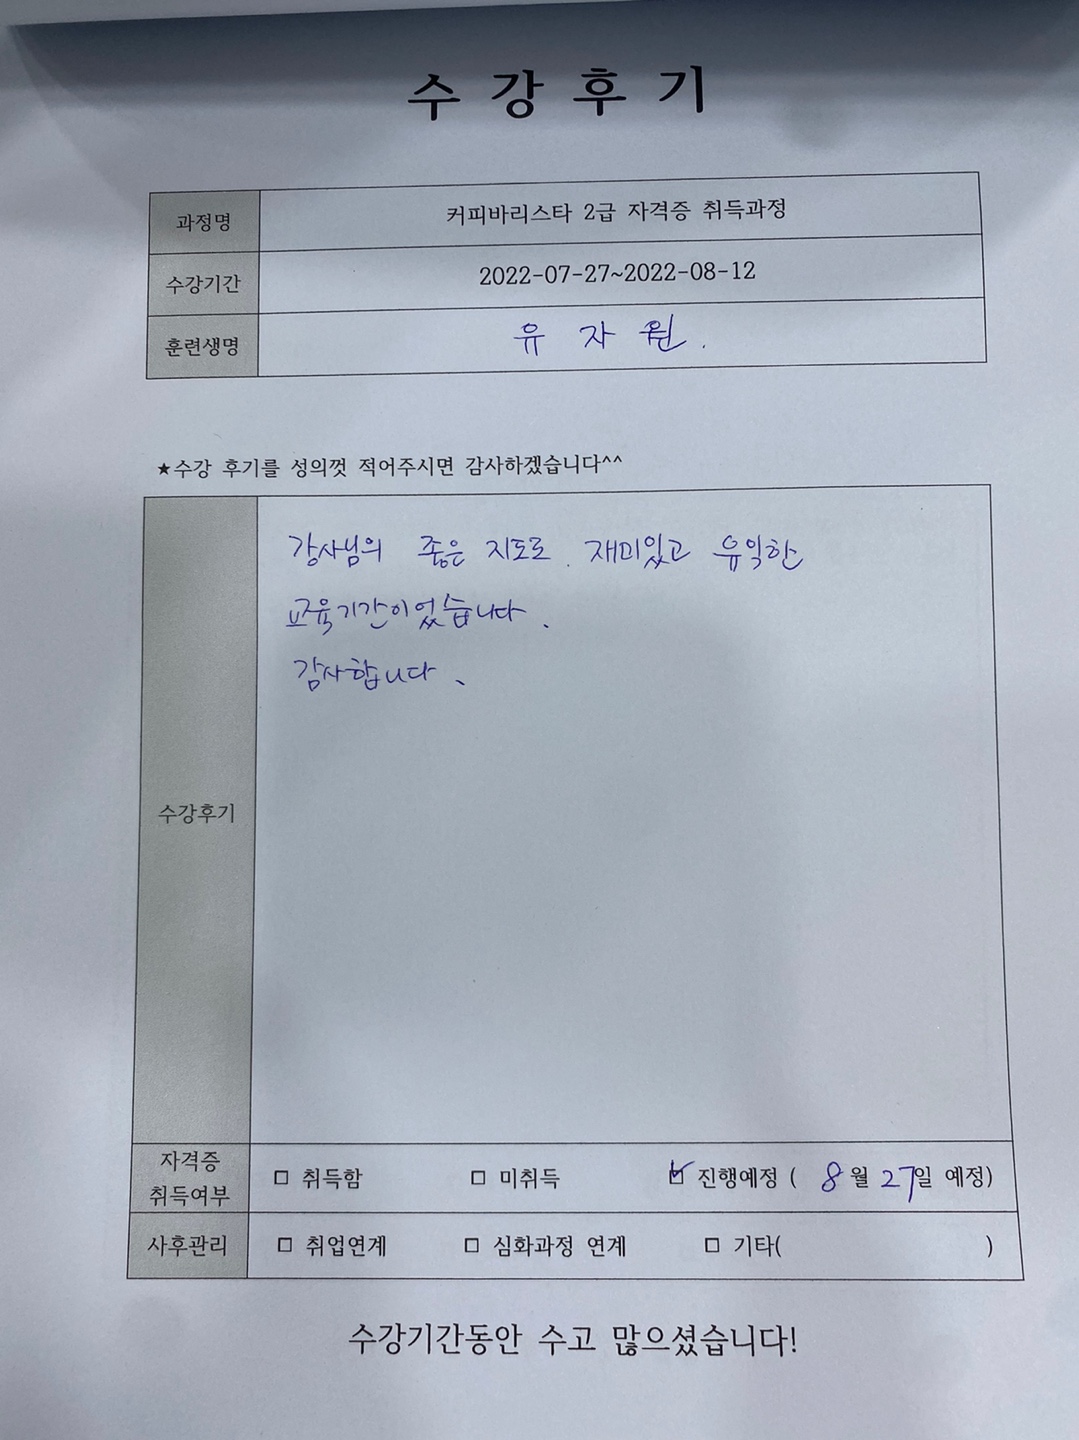 수 강 후 기
과정명 커피바리스타 2급 자격증 취득과정
수강기간 2022-07-27~2022-08-12
훈련생명 유 자 원.
★수강 후기를 성의껏 적어주시면 감사하겠습니다^^
강사님의 좋은 지도로. 재미있고 유익한
교육기간이었습니다.
감사합니다.
수강후기
자격증
취득여부 □ 취득함 □ 미취득 ☑ 진행예정 ( 8월 27일 예정)
사후관리 □ 취업연계 □ 심화과정 연계 □ 기타( )
수강기간동안 수고 많으셨습니다!